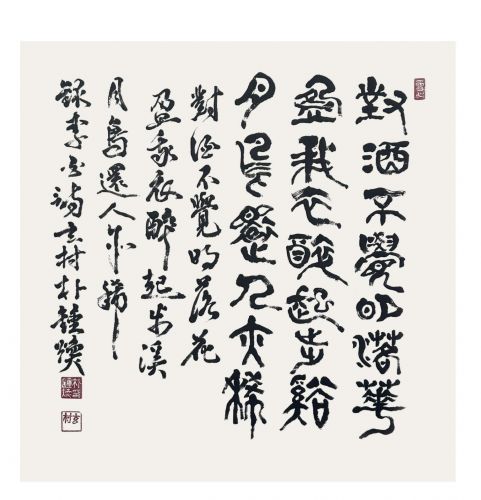 對酒不覺暝落華
盈我衣醉起步谿
月鳥還人亦稀
對酒不覺暝落花
盈我衣醉起步溪
月鳥還人亦稀
錄李白詩玄村朴
玄村